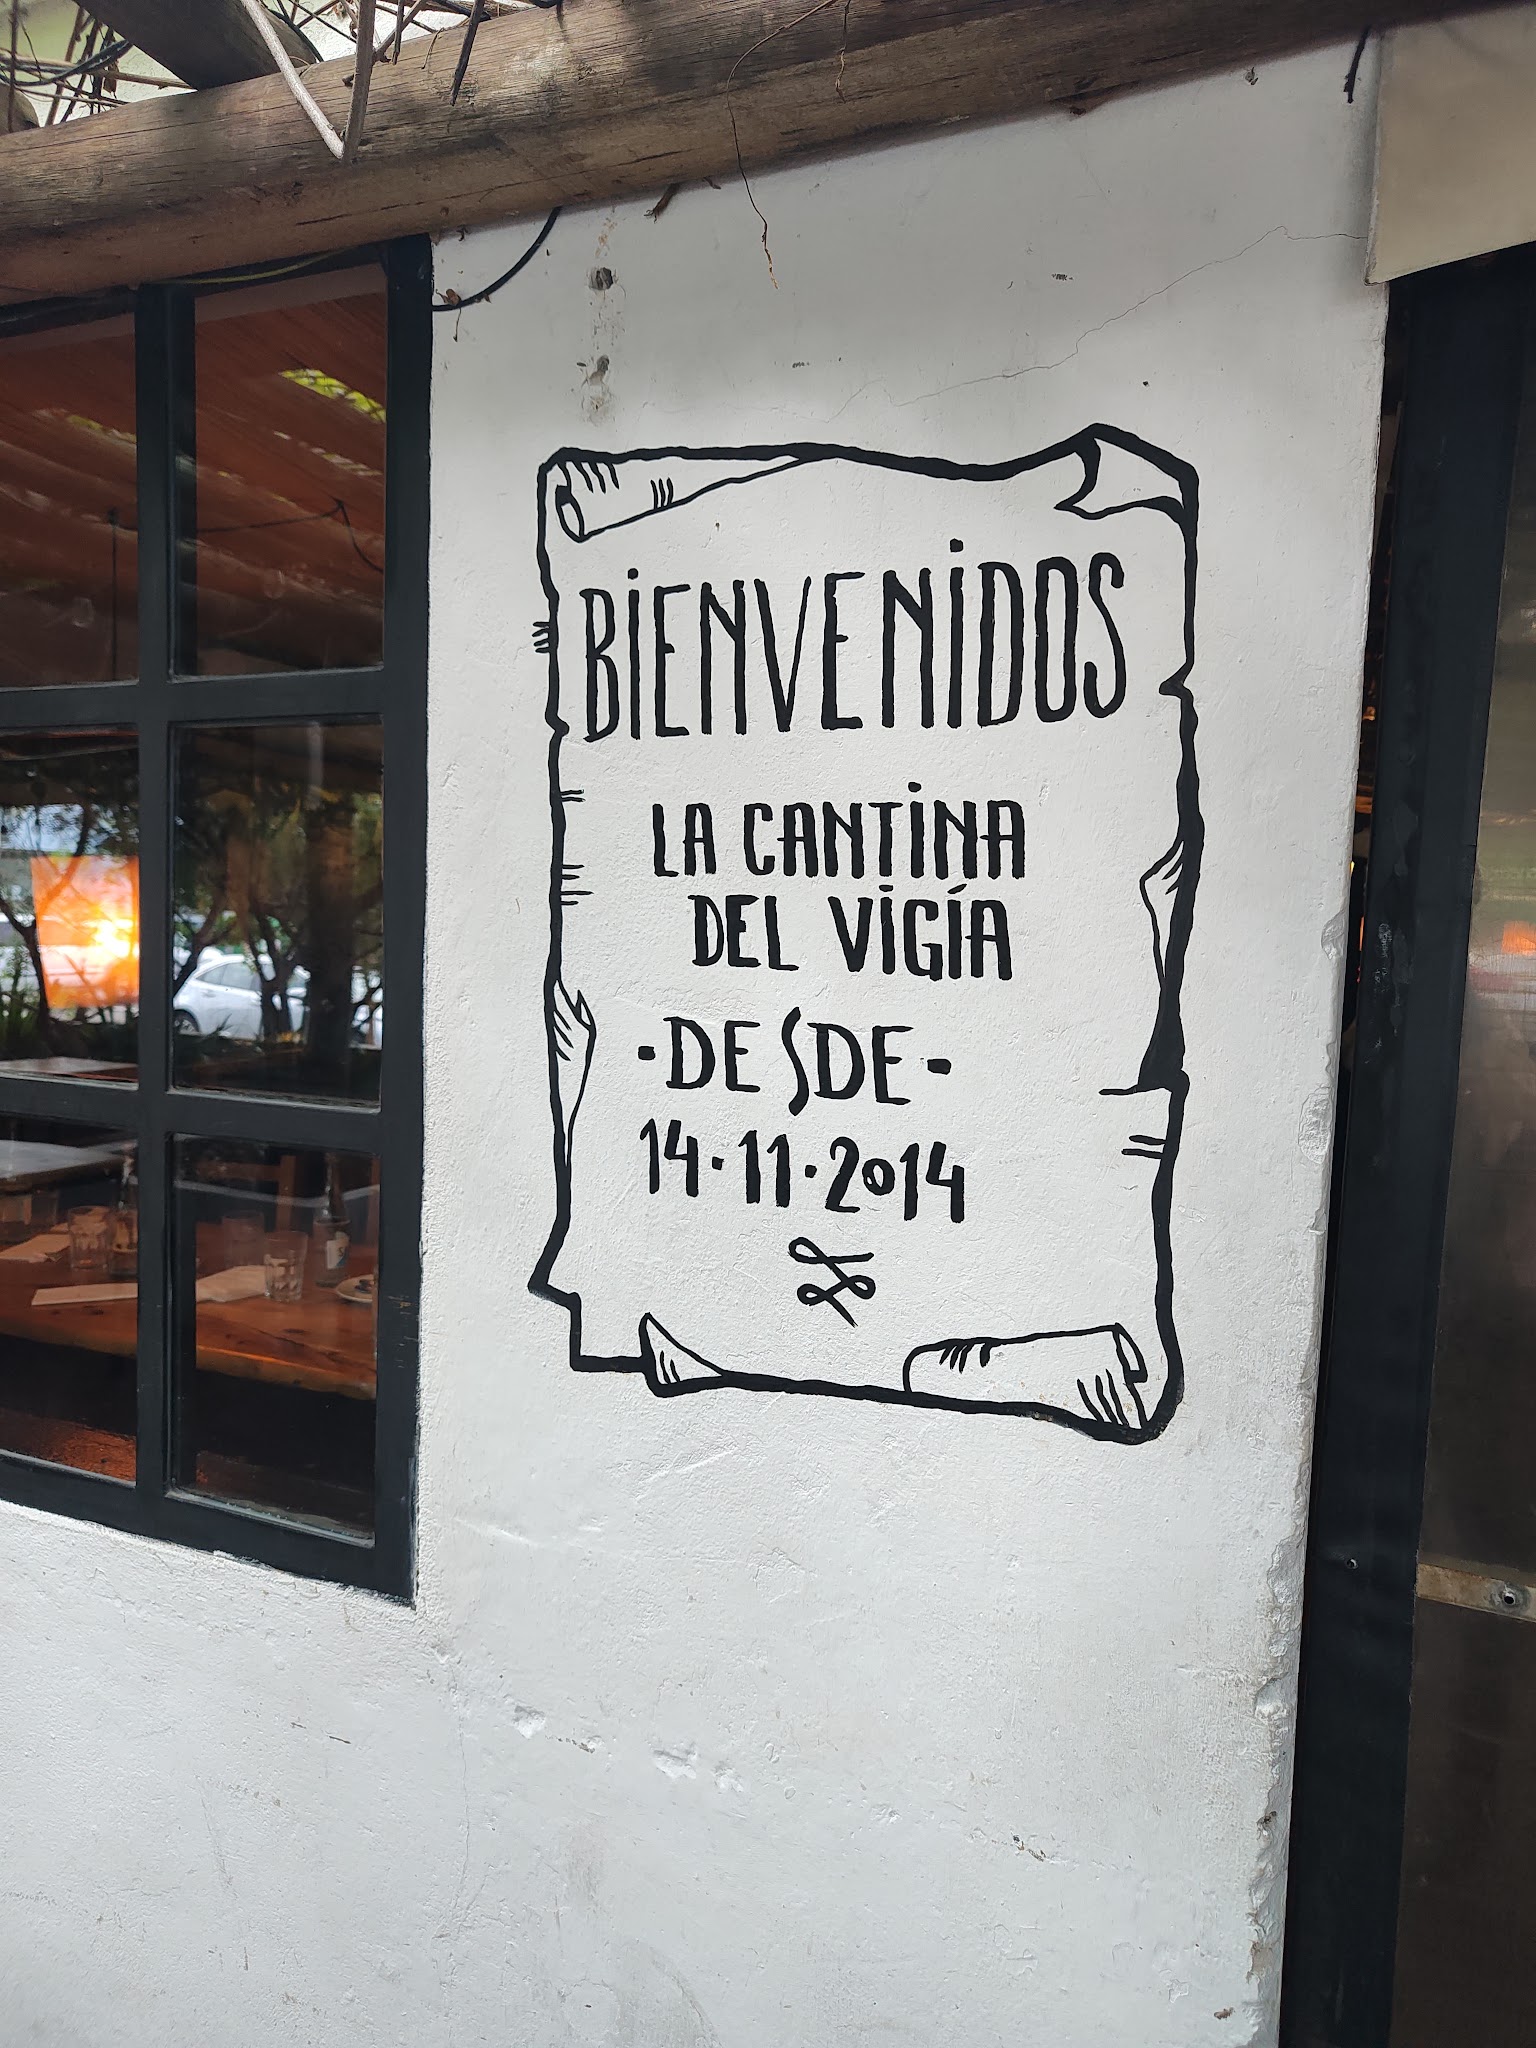 BiENVENiDOS
LA CANTiNA
DEL ViGÍA
-DESDE-
14·11·2014